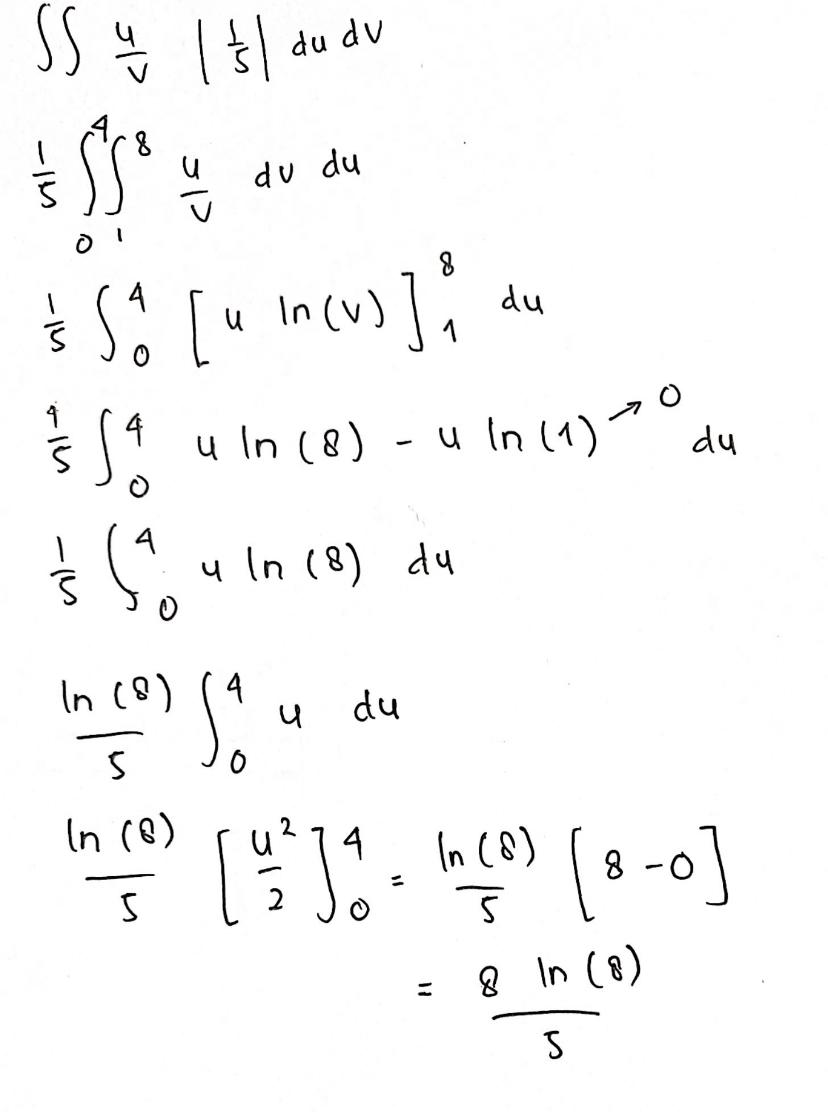 ∫∫ u/v |1/5| du dv
1/5 ∫₀⁴ ∫₁⁸ u/v dv du
1/5 ∫₀⁴ [u ln(v)]₁⁸ du
1/5 ∫₀⁴ u ln(8) - u ln(1)→0 du
1/5 ∫₀⁴ u ln(8) du
ln(8)/5 ∫₀⁴ u du
ln(8)/5 [u²/2]₀⁴ = ln(8)/5 [8-0]
= 8 ln(8)/5